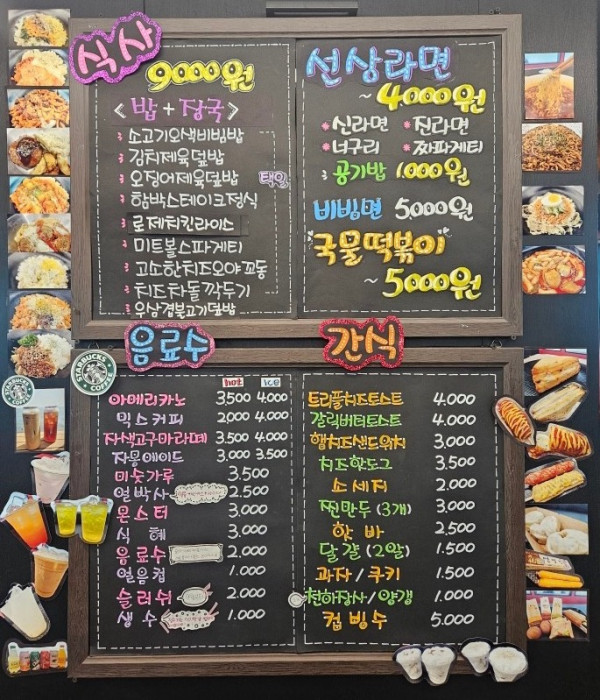 식사
9000원
<밥+장국>
소고기오색비빔밥
김치제육덮밥
오징어제육덮밥 택일
함박스테이크정식
로제치킨라이스
미트볼스파게티
고소한치즈오야꼬동
치즈차돌깍두기
우삼겹불고기덮밥
선상라면
~4000원
*신라면 *진라면
*너구리 *짜파게티
공기밥 1.000원
비빔면 5000원
국물떡볶이
~5000원
음료수
STARBUCKS COFFEE
hot ice
아메리카노 3.500 4.000
믹스커피 2.000 4.000
자색고구마라떼 3.500 4.000
자몽에이드 3.000 3.500
미숫가루 3.500
얼박사 2.500
몬스터 3.000
식혜 3.000
음료수 2.000
얼음컵 1.000
슬러쉬 2.000
생수 1.000
간식
트리플치즈토스트 4.000
갈릭버터토스트 4.000
햄치즈샌드위치 3.000
치즈핫도그 3.500
소세지 2.000
찐만두(3개) 3.000
핫바 2.500
달걀(2알) 1.500
과자/쿠키 1.500
천하장사/양갱 1.000
컵빙수 5.000